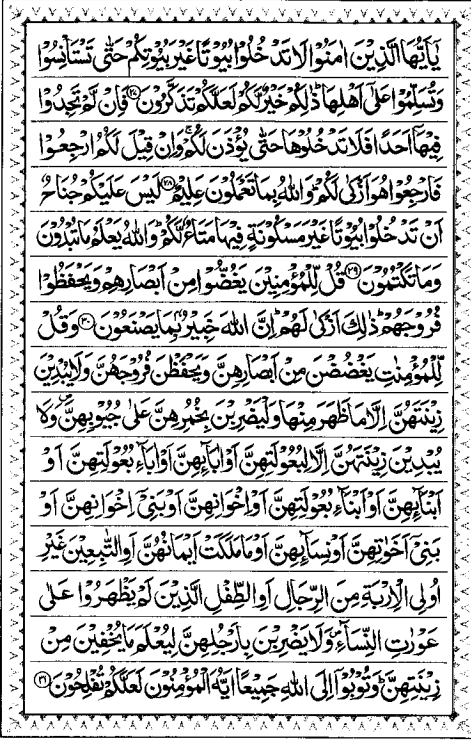 يٰۤاَيُّهَا الَّذِيْنَ اٰمَنُوْا لَا تَدْخُلُوْا بُيُوْتًا غَيْرَ بُيُوْتِكُمْ حَتّٰى تَسْتَاْنِسُوْا
وَتُسَلِّمُوْا عَلٰۤى اَهْلِهَا ؕ ذٰلِكُمْ خَيْرٌ لَّكُمْ لَعَلَّكُمْ تَذَكَّرُوْنَ ﴿۲۷﴾ فَاِنْ لَّمْ تَجِدُوْا
فِيْهَاۤ اَحَدًا فَلَا تَدْخُلُوْهَا حَتّٰى يُؤْذَنَ لَكُمْ ۚ وَاِنْ قِيْلَ لَكُمُ ارْجِعُوْا
فَارْجِعُوْا هُوَ اَزْكٰى لَكُمْ ؕ وَاللّٰهُ بِمَا تَعْمَلُوْنَ عَلِيْمٌ ﴿۲۸﴾ لَيْسَ عَلَيْكُمْ جُنَاحٌ
اَنْ تَدْخُلُوْا بُيُوْتًا غَيْرَ مَسْكُوْنَةٍ فِيْهَا مَتَاعٌ لَّكُمْ ؕ وَاللّٰهُ يَعْلَمُ مَا تُبْدُوْنَ
وَمَا تَكْتُمُوْنَ ﴿۲۹﴾ قُلْ لِّلْمُؤْمِنِيْنَ يَغُضُّوْا مِنْ اَبْصَارِهِمْ وَيَحْفَظُوْا
فُرُوْجَهُمْ ؕ ذٰلِكَ اَزْكٰى لَهُمْ ؕ اِنَّ اللّٰهَ خَبِيْرٌۢ بِمَا يَصْنَعُوْنَ ﴿۳۰﴾ وَقُلْ
لِّلْمُؤْمِنٰتِ يَغْضُضْنَ مِنْ اَبْصَارِهِنَّ وَيَحْفَظْنَ فُرُوْجَهُنَّ وَلَا يُبْدِيْنَ
زِيْنَتَهُنَّ اِلَّا مَا ظَهَرَ مِنْهَا وَلْيَضْرِبْنَ بِخُمُرِهِنَّ عَلٰى جُيُوْبِهِنَّ ۪ وَلَا
يُبْدِيْنَ زِيْنَتَهُنَّ اِلَّا لِبُعُوْلَتِهِنَّ اَوْ اٰبَآئِهِنَّ اَوْ اٰبَآءِ بُعُوْلَتِهِنَّ اَوْ
اَبْنَآئِهِنَّ اَوْ اَبْنَآءِ بُعُوْلَتِهِنَّ اَوْ اِخْوَانِهِنَّ اَوْ بَنِيْۤ اِخْوَانِهِنَّ اَوْ
بَنِيْۤ اَخَوٰتِهِنَّ اَوْ نِسَآئِهِنَّ اَوْ مَا مَلَكَتْ اَيْمَانُهُنَّ اَوِ التّٰبِعِيْنَ غَيْرِ
اُولِى الْاِرْبَةِ مِنَ الرِّجَالِ اَوِ الطِّفْلِ الَّذِيْنَ لَمْ يَظْهَرُوْا عَلٰى
عَوْرٰتِ النِّسَآءِ ۪ وَلَا يَضْرِبْنَ بِاَرْجُلِهِنَّ لِيُعْلَمَ مَا يُخْفِيْنَ مِنْ
زِيْنَتِهِنَّ ؕ وَتُوْبُوْۤا اِلَى اللّٰهِ جَمِيْعًا اَيُّهَ الْمُؤْمِنُوْنَ لَعَلَّكُمْ تُفْلِحُوْنَ ﴿۳۱﴾